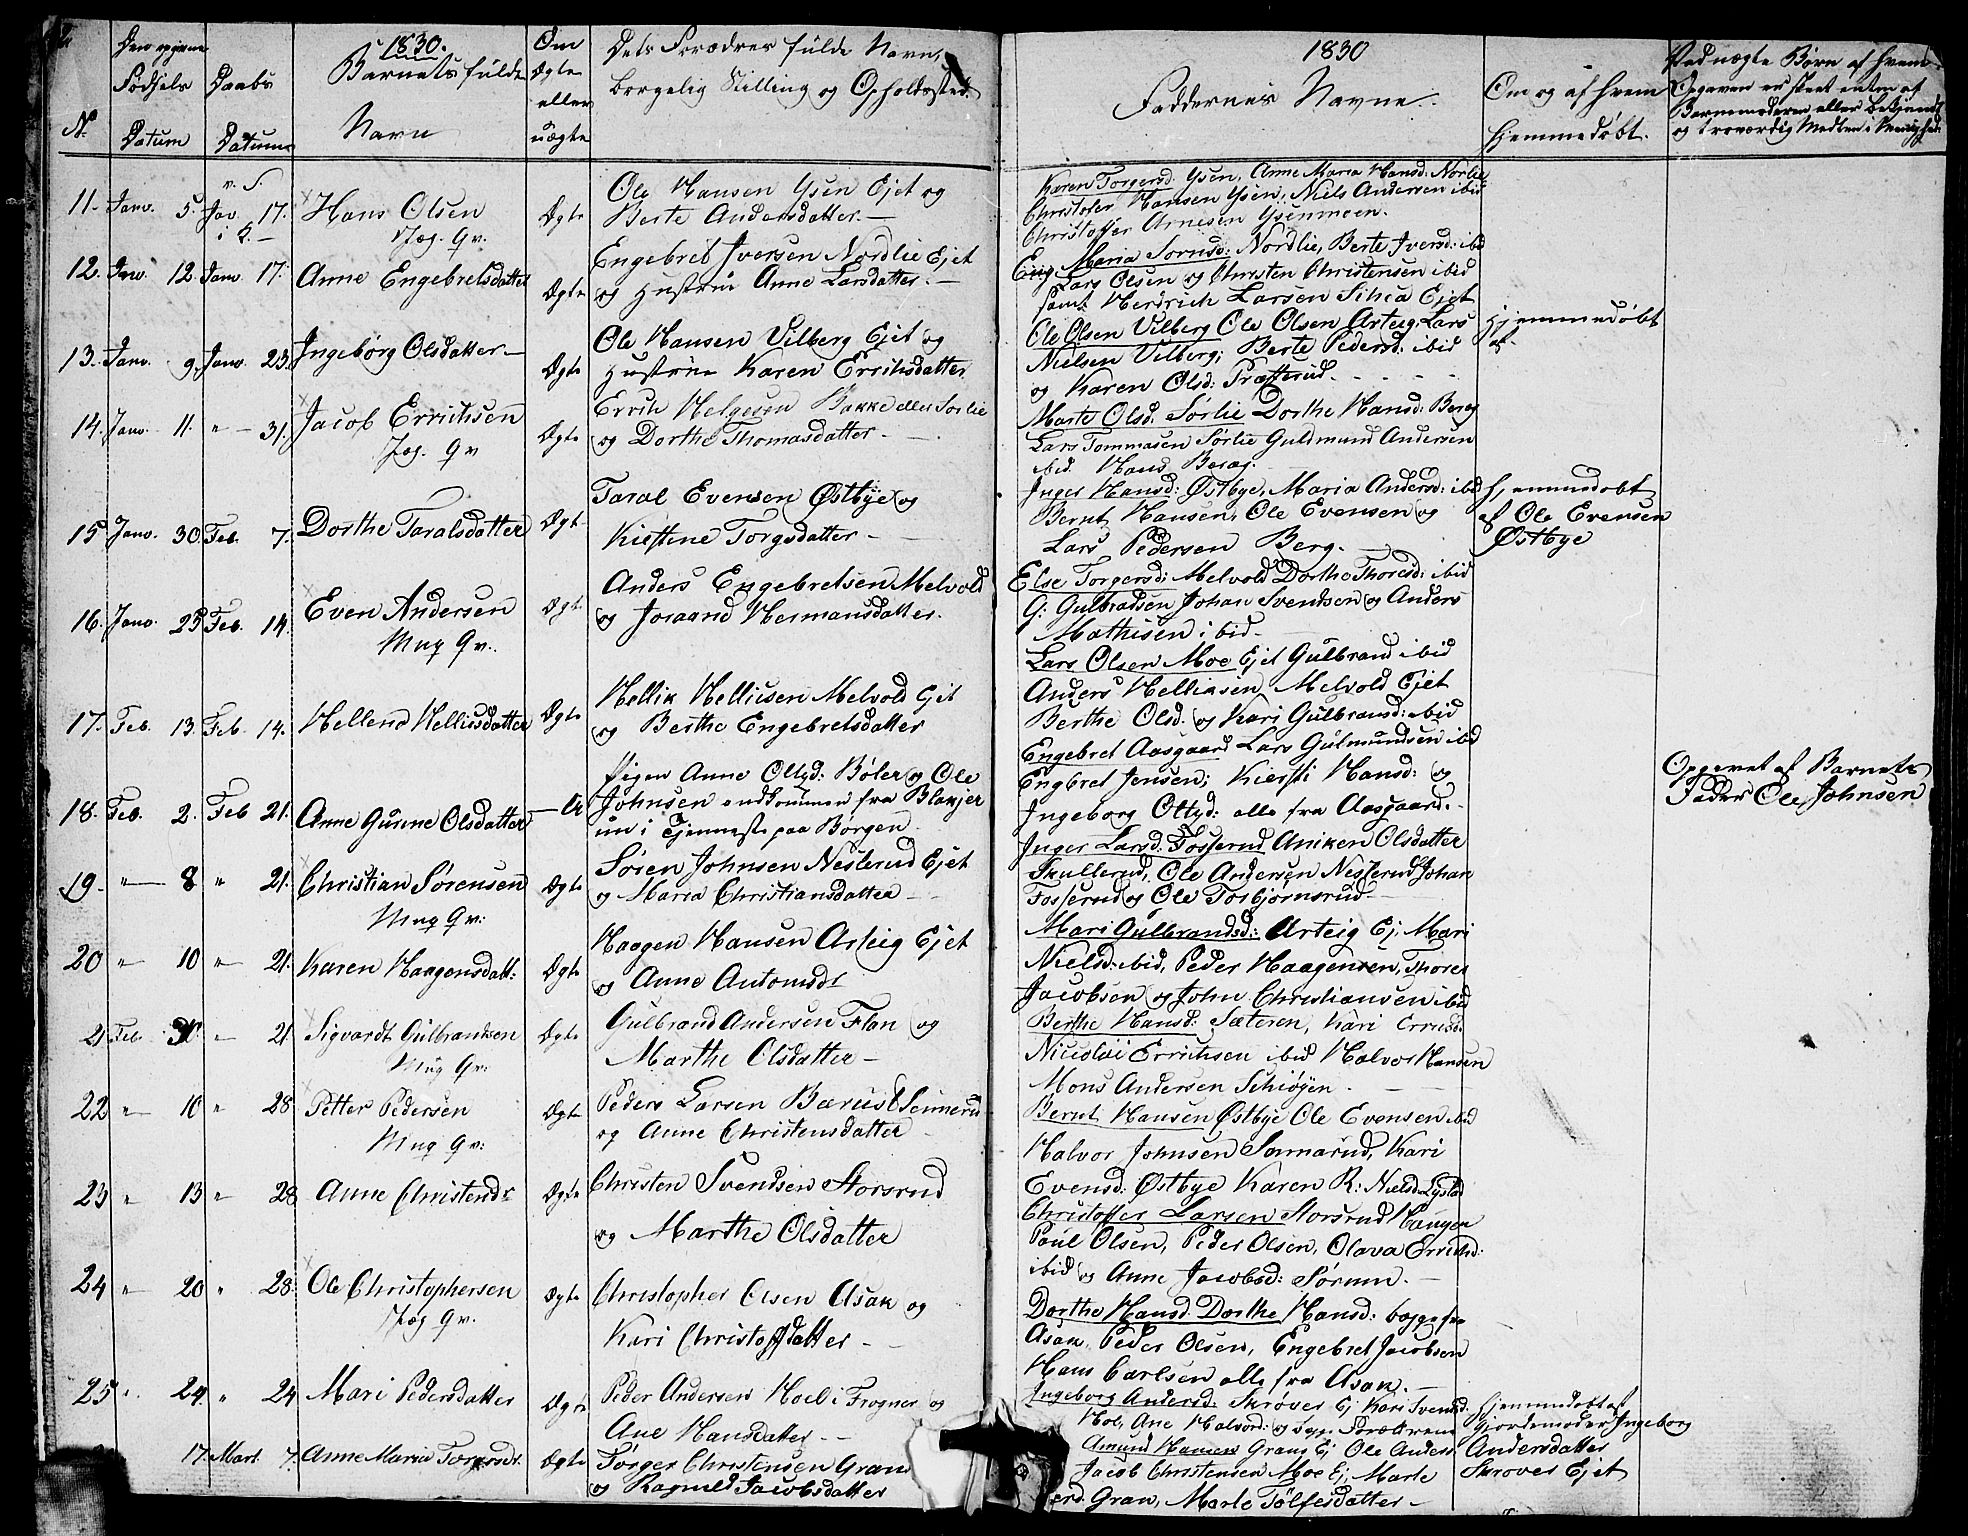 1830.
No
Den opgivne
Fødsels
Datum
Daabs
Datum
Barnets fulde
Navn
Om
Ægte
eller
uægte
Dets Forædres fulde Navn,
borgelig Stilling og Opholdssted.
1830
Faddernes Navne.
Om og af hvem
hjemmedøbt.
Ved uægte Børn af hvem
Opgaven er skeet enten af
Barnemoderen eller bekjendt
og troværdig Medlem i Menighed:
11. Janv. 5. Jav. 17. Hans Olsen Ægte
Jæg. Qv.
Ole Hansen Ysen Ejet og
Berte Andersdatter. —
Karen Torgersd. Ysen, Anne Maria Hansd: Norlie
Christofer Hansen Ysen, Niels Andersen ibid
Christoffer Arnesen Ysenmoen.
12. Janv. 12. Janv. 17. Anne Engebretsdatter Ægte
Engebret Iversen Nordlie Ejet
og Hustrue Anne Larsdatter. —
Maria Sørensd: Nordlie, Berte Iversd: ibid
Lars Olsen og Christen Christensen ibid
samt Hendrich Larsen Ejet
13. Janv. 9. Janv. 23. Ingebörg Olsdatter — Ægte
Ole Hansen Vilberg Ejet og
Hustrue Karen Errichsdatter
Ole Olsen Vilberg Ole Olsen Arteig, Lars
Nielsen Vilberg; Berte Pedersd: ibid
og Karen Olsd: Præsterud.
Hjemmedøbt
af.
14. Janv. 11. " — 31. Jacob Errichsen Ægte
Jæg. Qv
Errich Helgesen Bakke eller Sørlie
og Dorthe Thomasdatter. —
Marte Olsd. Sørlie Dorthe Hansd: Berg
Lars Tommasen Sørlie Guldmund Andersen
ibid. Hans Berg.
15 Janv. 30. Feb. 7. Dorthe Taralsdatter Ægt
Taral Evensen Østbye og
Kirstene Torgsdatter. —
Inger Hansd: Østbye, Maria Andersd: ibid
Bernt Hansen, Ole Evensen og
Lars Pedersen Berg. —
hjemmedøbt
af Ole Evensen
Østbye
16. Janv. 25 Feb. 14. Even Andersen Ægt
Mug Qv.
Anders Engebretsen Melvold
og Joraand Hermansdatter.
Else Torgersd: Melvold Dorthe Thoresd: ibid
G: Gulbradsen Johan Svendsen og Anders
Mathisen ibid.
17. Feb. 13. Feb. 14. Hellene Hellicsdatter Ægte
Hellik Hellicsen Melvold Ejet
og Berthe Engebretsdatter
Lars Olsen Moe Ejet Gulbrand ibid
Anders Helliksen Melvold Ejet
Berthe Olsd. og Kari Gulbransd: ibid
18. Feb. 2. Feb 21. Anne Gunne Olsdatter — U
Pigen Anne Ottsd: Bøler og Ole
Johnsen Blakjer
nu i Tjenneste paa Børgen
Engebret Aasgaard Lars Gulmundsen ibid
Engbret Jensen; Kiersti Hansd: og
Ingeborg Ottsd: alle fra Aasgaard. —
Opgevet af Barnets
Fader Ole Johnsen
19. " — 8 " 21. Christian Sörensen Ægte
Mug Qv:
Søren Johnsen Nesterud Ejet
og Maria Christiansdatter —
Inger Larsd: Fosserud Aniken Olsdatter
Skullerud, Ole Andersen Nesterud Johan
Fosserud og Ole Torbjørnsrud —
20 " 10 " 21. Karen Haagensdatt: Ægte
Haagen Hansen Arteig Ejet
og Anne Antonisdr
Mari Gulbrandsd: Arteig Ej. Mari
Nielsd: ibid, Peder Haagensen, Thores
Jacobsen og John Christiansen ibid
21 Feb. " — 21 Sigvardt Gulbrantsen Ægte
Mug Qv:
Gulbrand Andersen Flan og
Marthe Olsdatter —
Berthe Hansd: Sæteren, Kari
Nicolai Errichsen ibid Halvor Hansen
Mons Andersen Schiøyen. —
22 " — 10 " 28 Petter Pedersen Ægte
Mug Qv:
Peders Larsen
og Anne Christensdatter
Bernt Hansen Østbye Ole Evensen ibid
Halvor Johnsen Sonnarud, Kari
Evensd: Østbye Karen R: Nielsd. Lystad
23 " 13 " 28 Anne Christensdr Ægte
Christen Svendsen Storsrud
og Marthe Olsdatter
Christoffer Larsen Storsrud Haugen
Paul Olsen, Peder Olsen, Olava
ibid og Anne Jacobsd: Sørum. —
24 " 20 " 28. Ole Christophersen Ægte
Jæg Qv.
Christopher Olsen Asak og
Kari Christoffsdatter —
Dorthe Hansd. Dorthe Hansd: begge fra
Asak Peder Olsen, Engebret Jacobsen
Hans Carlsen alle fra Asak. —
25 " 24. " 24 Mari Pedersdatter Ægte
Peder Andersen Hoel i Frogner og
Ane Hansdatter —
Ingeborg Andersd: Skrøver Ej: Kari Svensd.
Hoe, Ane Halvord: og Forældrene
hjemmedøbt af
Gjordemoder Ingeborg
Andersdatter
Skrover Ejet
17. Mart. 7. Anne Maria Torgersdr. Ægte
Törger Christensen Gran
og Ragnild Jacobsdatter
Amund Hansen Grans Ej Ole Anders.
Jacob Christensen Moe Ej. Marte
Gran, Marte Tolfesdatter —